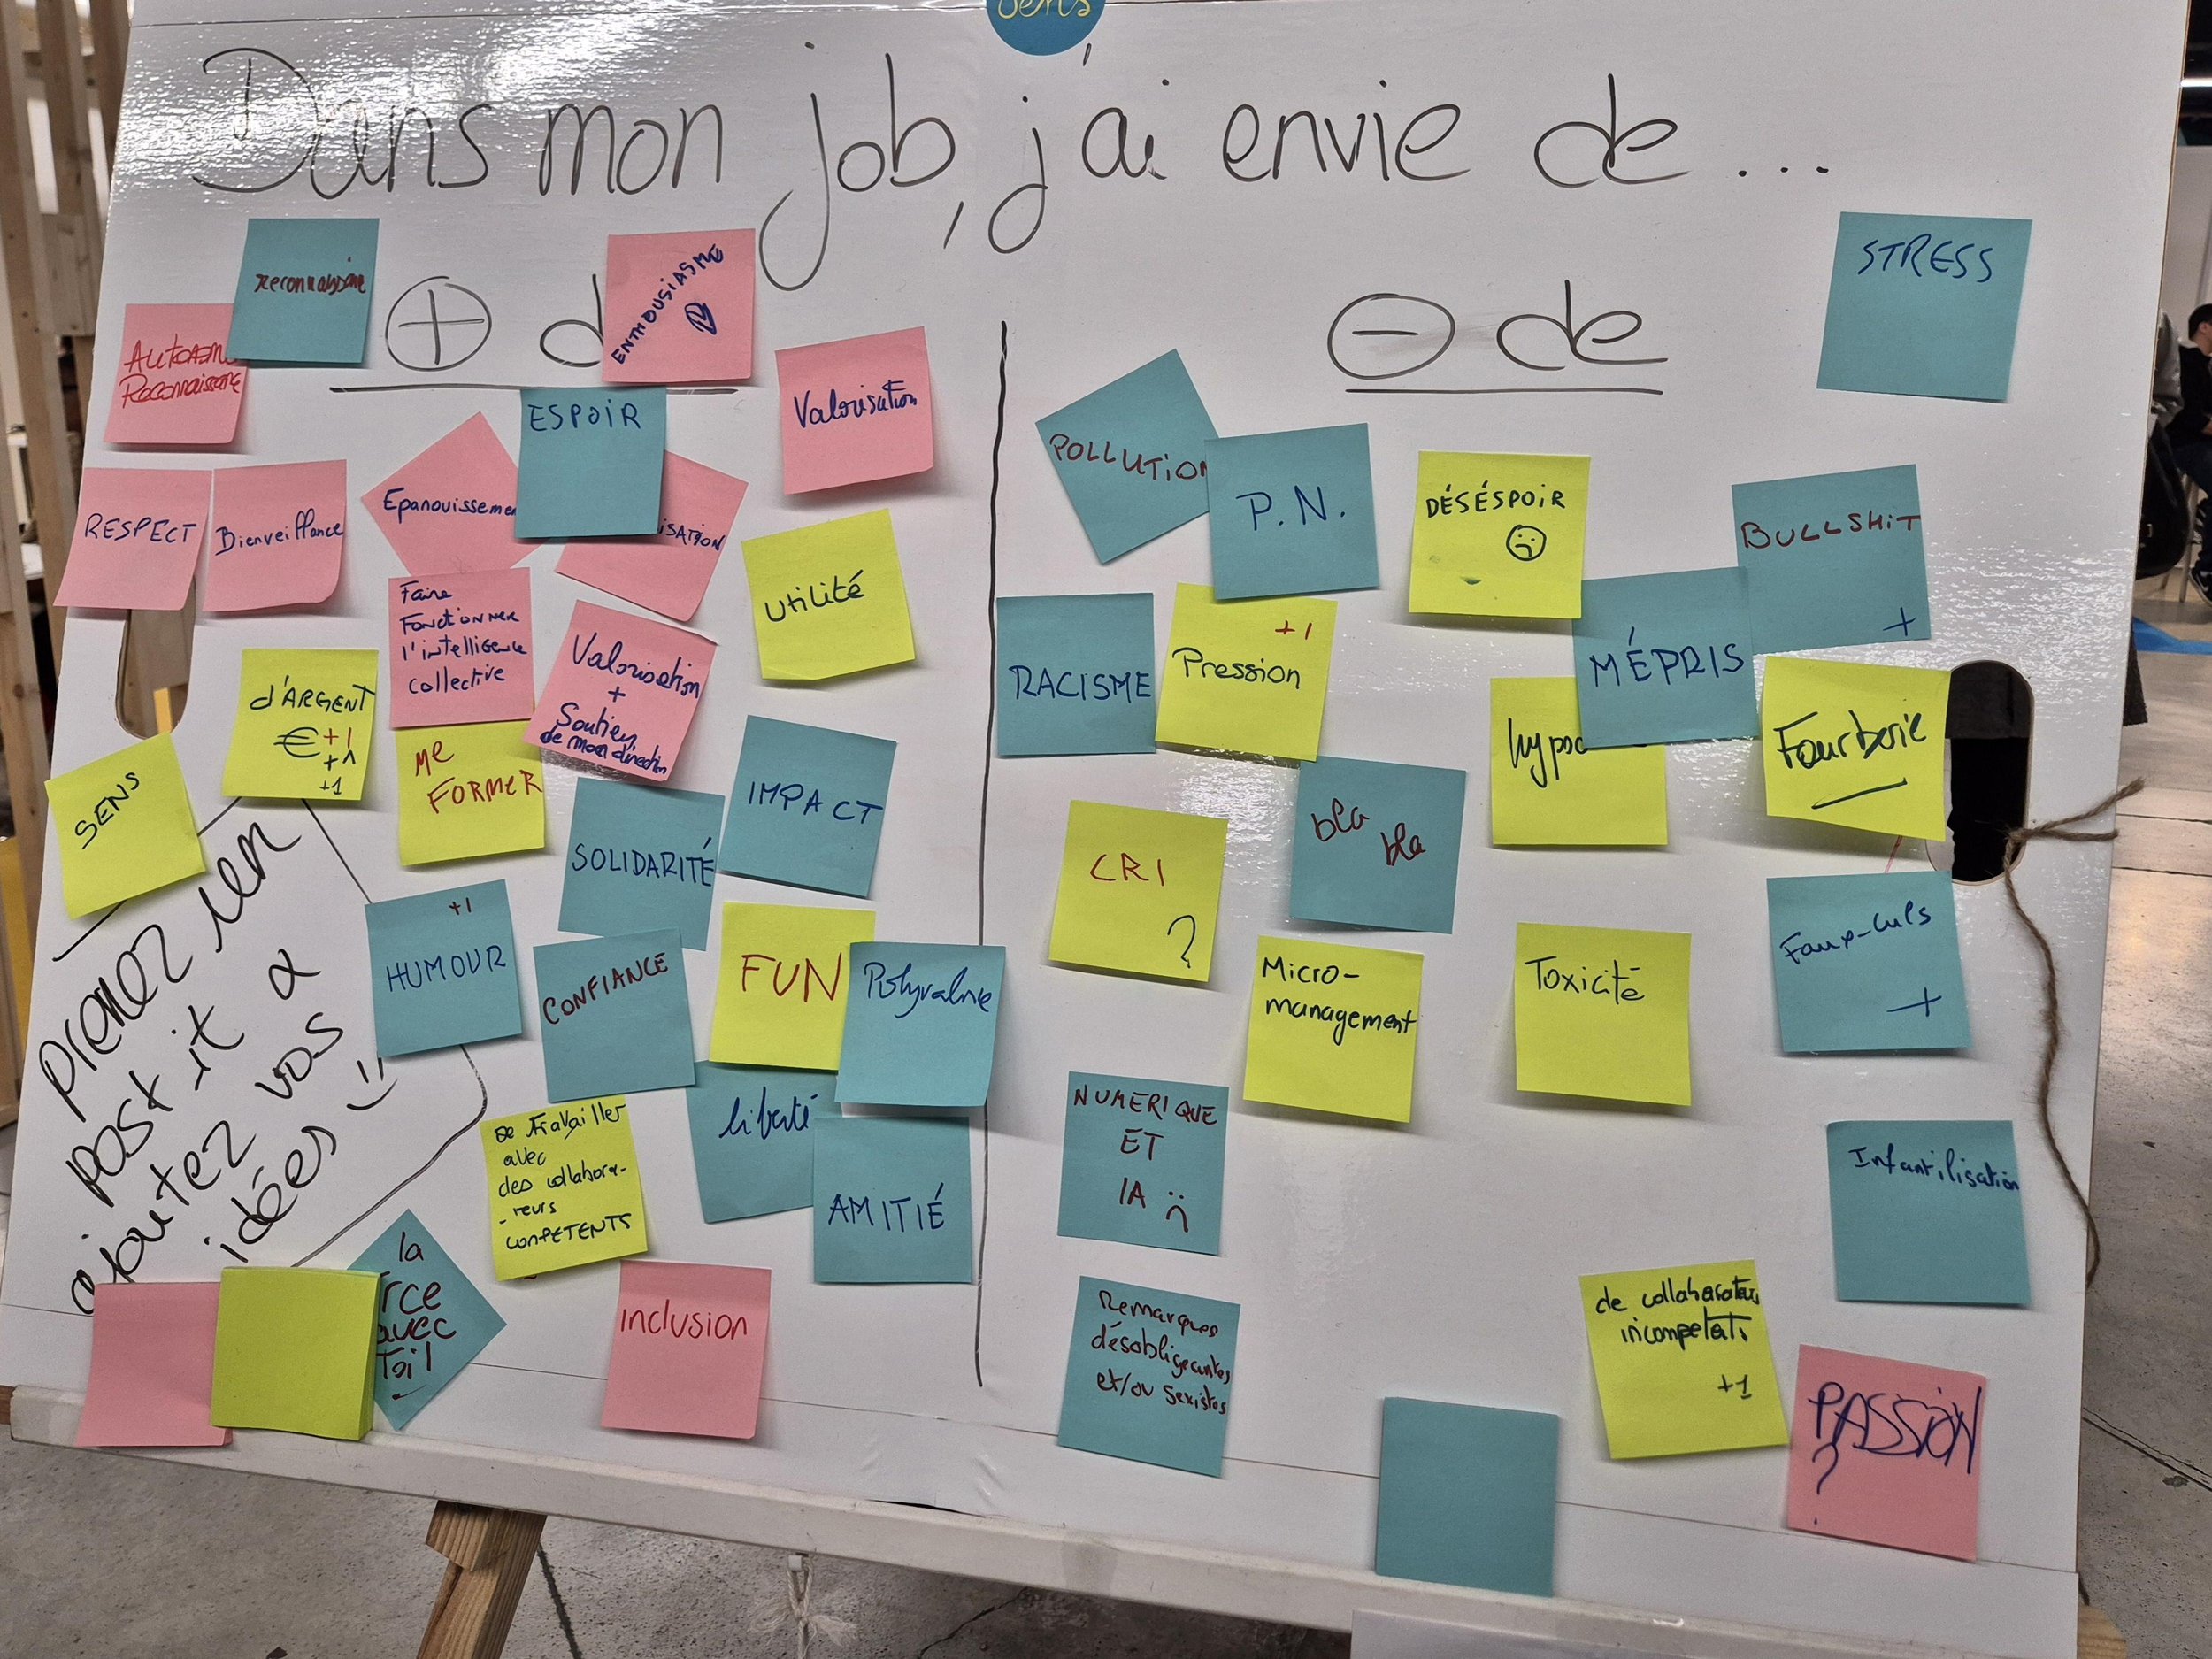 Sens
Dans mon job, j'ai envie de ...
⊕ d
⊖ de
Reconnaissance
ENTHOUSIASME
AUTONOMIE
Reconnaissance
Valorisation
ESPOIR
RESPECT
Bienveillance
Epanouisseme
ISATION
Utilité
Faire
Fonctionner
l'intelligence
collective
Valorisation
+
Soutien
de mon direction
d'ARGENT
€ +1
+1
+1
SENS
Me
FORMER
IMPACT
SOLIDARITÉ
Prenez un
post it &
ajoutez vos
idées :)
+1
HUMOUR
CONFIANCE
FUN
Polyvalence
liberté
De travailler
avec
des collabora-
-teurs
COMPÉTENTS
AMITIÉ
la
rce
avec
Toi!
inclusion
STRESS
POLLUTION
P.N.
DÉSÉSPOIR
BULLSHIT
+
RACISME
+1
Pression
MÉPRIS
hypoc
Fourberie
bla
bla
CRI
?
Micro-
management
Toxicité
Faux-culs
+
NUMERIQUE
ET
IA :(
Infantilisation
Remarques
désobligeantes
et/ou sexistes
de collaborateurs
incompétents
+1
PASSION
?